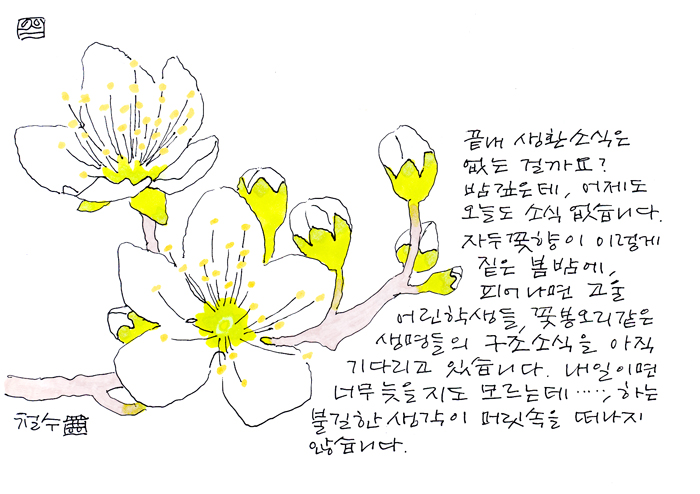 끝내 생환소식은
없는 걸까요?
밤깊은데, 어제도
오늘도 소식 없습니다.
자두꽃향이 이렇게
짙은 봄밤에,
피어나면 고울
어린학생들, 꽃봉오리같은
생명들의 구조소식을 아직
기다리고 있습니다. 내일이면
너무늦을지도 모르는데……, 하는
불길한생각이 머릿속을 떠나지
않습니다.
철수